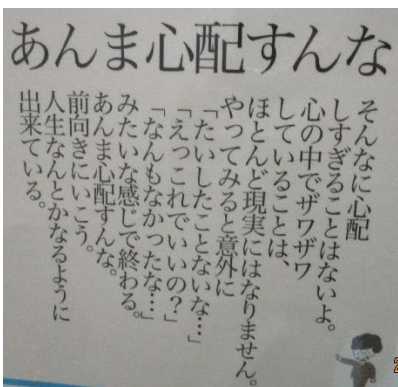 あんま心配すんな
そんなに心配
しすぎることはないよ。
心の中でザワザワ
していることは、
ほとんど現実にはなりません。
やってみると意外に
「たいしたことないな…」
「えっこれでいいの？」
「なんもなかったな…」
みたいな感じで終わる。
あんま心配すんな。
前向きにいこう。
人生なんとかなるように
出来ている。